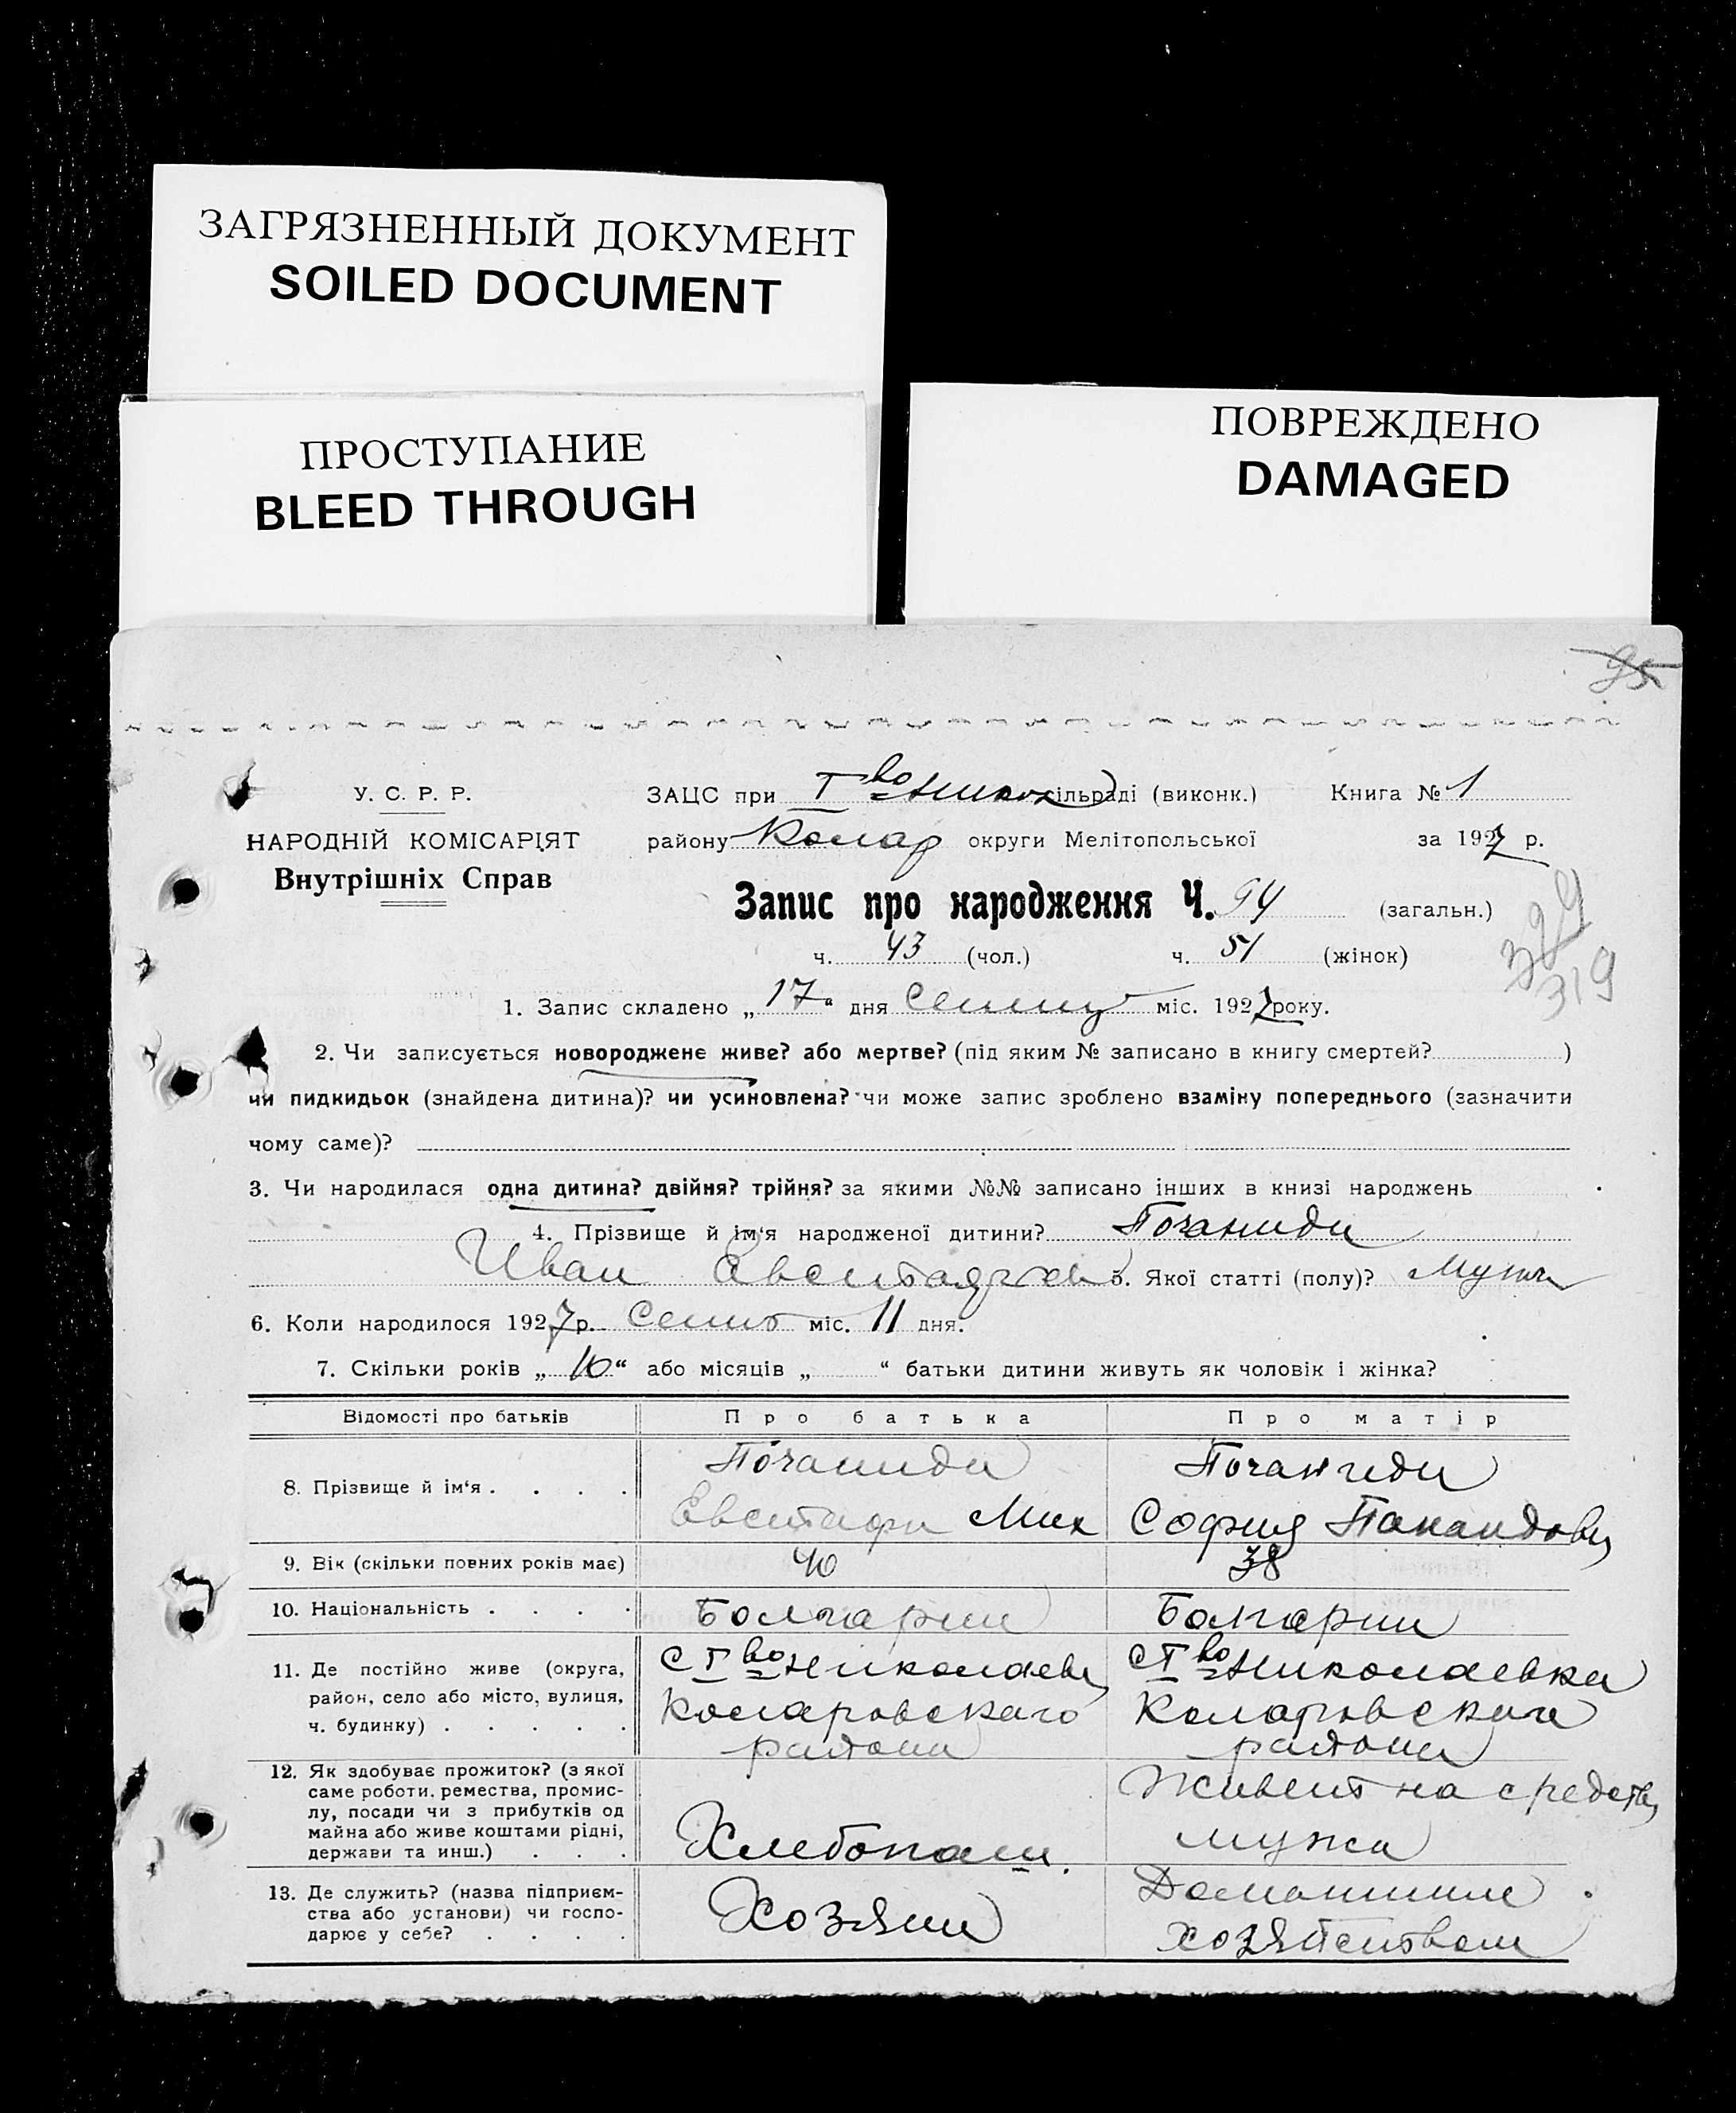 ЗАГРЯЗНЕННЫЙ ДОКУМЕНТ
SOILED DOCUMENT
ПРОСТУПАНИЕ
BLEED THROUGH
ПОВРЕЖДЕНО
DAMAGED
95
У. С. Р. Р.
НАРОДНІЙ КОМІСАРІЯТ
Внутрішніх Справ
ЗАЦС при Гво Никол сільраді (виконк.) Книга № 1
району Колар округи Мелітопольської за 1927 р.
Запис про народження Ч. 94 (загальн.)
ч. 43 (чол.) ч. 51 (жінок)
329
319
1. Запис складено „17“ дня міс. 1927 року.
2. Чи записується новороджене живе? або мертве? (під яким № записано в книгу смертей? )
чи пидкидьок (знайдена дитина)? чи усиновлена? чи може запис зроблено взаміну попереднього (зазначити
чому саме)?
3. Чи народилася одна дитина? двійня? трійня? за якими №№ записано інших в книзі народжень
4. Прізвище й ім‘я народженої дитини? Почаниди
Иван 5. Якої статті (полу)? Мужч
6. Коли народилося 1927 р. Сент міс. 11 дня.
7. Скільки років „10“ або місяців „ “ батьки дитини живуть як чоловік і жінка?
Відомості про батьків Про батька Про матір
8. Прізвище й ім‘я . . . .
Почаниди
Евстафи Мих
Почаниди
София
9. Вік (скільки повних років має) 40 38
10. Національність . . . . Болгарин Болгарин
11. Де постійно живе (округа,
район, село або місто, вулиця,
ч. будинку) . . . . .
с Гво Николаевк
Коларовскаго
района
с Гво Николаевка
Коларовскаго
района
12. Як здобуває прожиток? (з якої
саме роботи, ремества, промис-
лу, посади чи з прибутків од
майна або живе коштами рідні,
держави та инш.) . . .
Хлебопаш.
Живет на средств
мужа
13. Де служить? (назва підприєм-
ства або установи) чи госпо-
дарює у себе? . . . .
Хозяин
Домашним
хозяйством